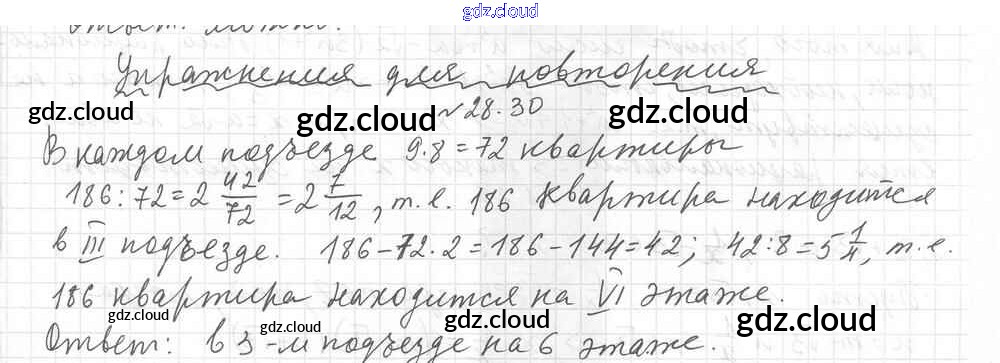 gdz.cloud
Ответ: можно.
Упражнения для повторения
gdz.cloud gdz.cloud №28.30 gdz.cloud
В каждом подъезде 9·8=72 квартиры
186:72=2 42/72 = 2 7/12, т.е. 186 квартира находится
в III подъезде. 186-72·2=186-144=42; 42:8=5 1/4, т.е.
186 квартира находится на VI этаже.
gdz.cloud gdz.cloud gdz.cloud
Ответ: в 3-м подъезде на 6 этаже.